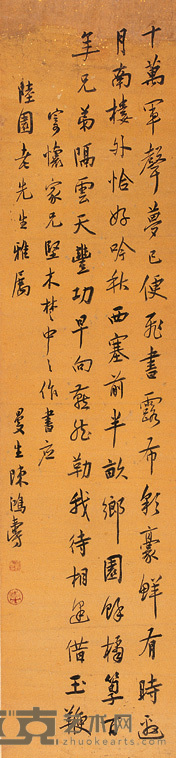 十萬軍聲夢已便飛書露布彩豪鮮有時邀
月南樓外恰好吟秋西塞前半畝鄉園餘橘算百
年兄弟隔雲天豐功早向燕然勒我待相逢借玉鞭
寄懷家兄堅木楚中之作書应
陸園老先生雅屬
曼生陳鴻壽